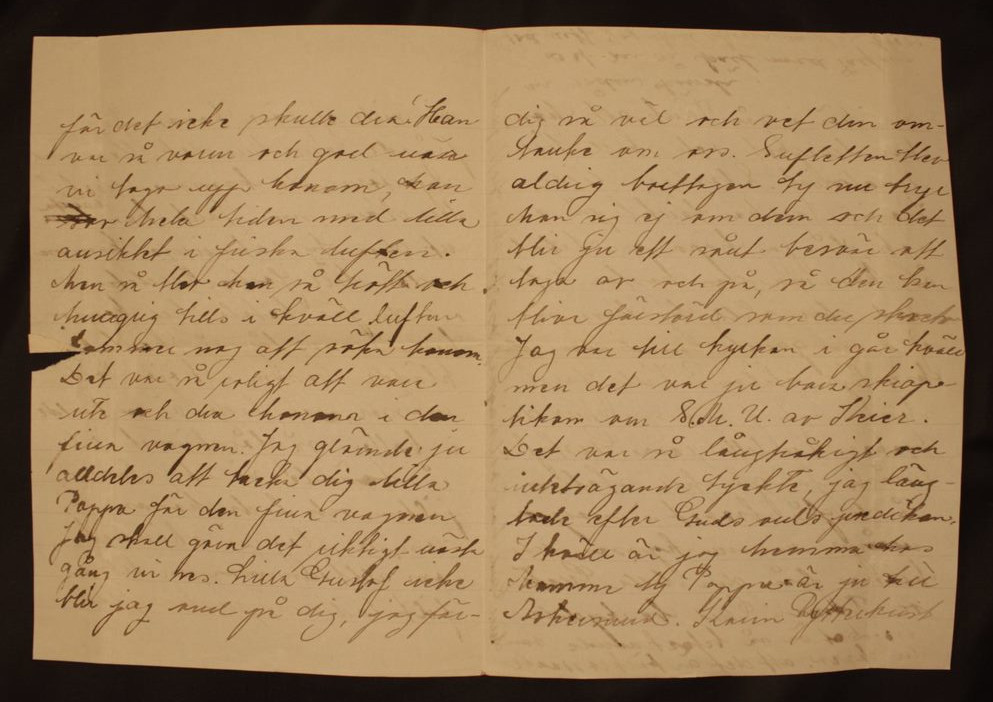 för det icke skulle dra. Han
var så varm och god när
vi togo upp honom, han
hela tiden med lilla
ansiktet i friska luften.
Men så blev han så trött och
hungrig tills i kväll luften
kommer nog att söfva honom.
Det var så roligt att vara
ute och dra honom i den
fina vagnen. Jag glömde ju
alldeles att tacka dig lilla
Pappa för den fina vagnen
Jag skall göra det riktigt nästa
gång vi ses. Lilla Gustaf icke
blir jag ond på dig, jag för-
dig så väl och vet din om-
tanke om oss. Suffletten blev
aldrig borttagen ty nu bryr
man sig ej om dem och det
blir ju ett sånt besvär att
taga av och på, så den kan
bliva förstörd som du
Jag var till kyrkan i går kväll
men det var ju bara skiop-
tikon om S.M.U. av
Det var så långtråkigt och
intetsägande tyckte jag läng-
tade efter Guds ords predikan.
I kväll är jag hemma hos
Mamma ty Pappa är ju till
Askersund. Karin